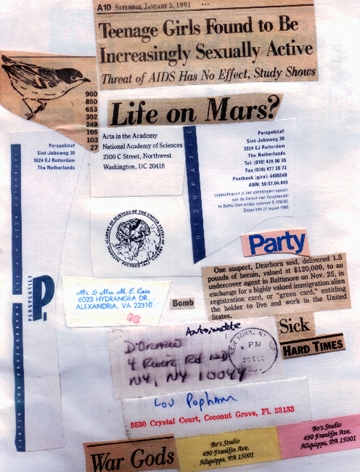 A10 SATURDAY, JANUARY 5, 1991
Teenage Girls Found to Be
Increasingly Sexually Active
Threat of AIDS Has No Effect, Study Shows
900
850
653
302
249
105
103
27
Life on Mars?
Perspektief
Sint-Jobsweg 30
3024 EJ Rotterdam
The Netherlands
Arts in the Academy
National Academy of Sciences
2100 C Street, Northwest
Washington, DC 20418
Perspektief
Sint-Jobsweg 30
3024 EJ Rotterdam
The Netherlands
PERSPEKTIEF
P.
Party
One suspect, Dearborn said, delivered 1.5
pounds of heroin, valued at $120,000, to an
undercover agent in Baltimore on Nov. 25, in
exchange for a highly valued immigration alien
registration card, or "green card," entitling
the holder to live and work in the United
States.
Mr. & Mrs. M. E.
6023 HYDRANGEA DR.
ALEXANDRIA, VA 22310
Bomb
Sick
HARD TIMES
Antoinette
NEW YORK, NY
PM
NY, NY
Lou Popham
5530 Crystal Court, Coconut Grove, FL 33133
War Gods
Bo's Studio
490 Franklin Ave.
Aliquippa, PA 15001
Bo's Studio
490 Franklin Ave.
Aliquippa, PA 15001